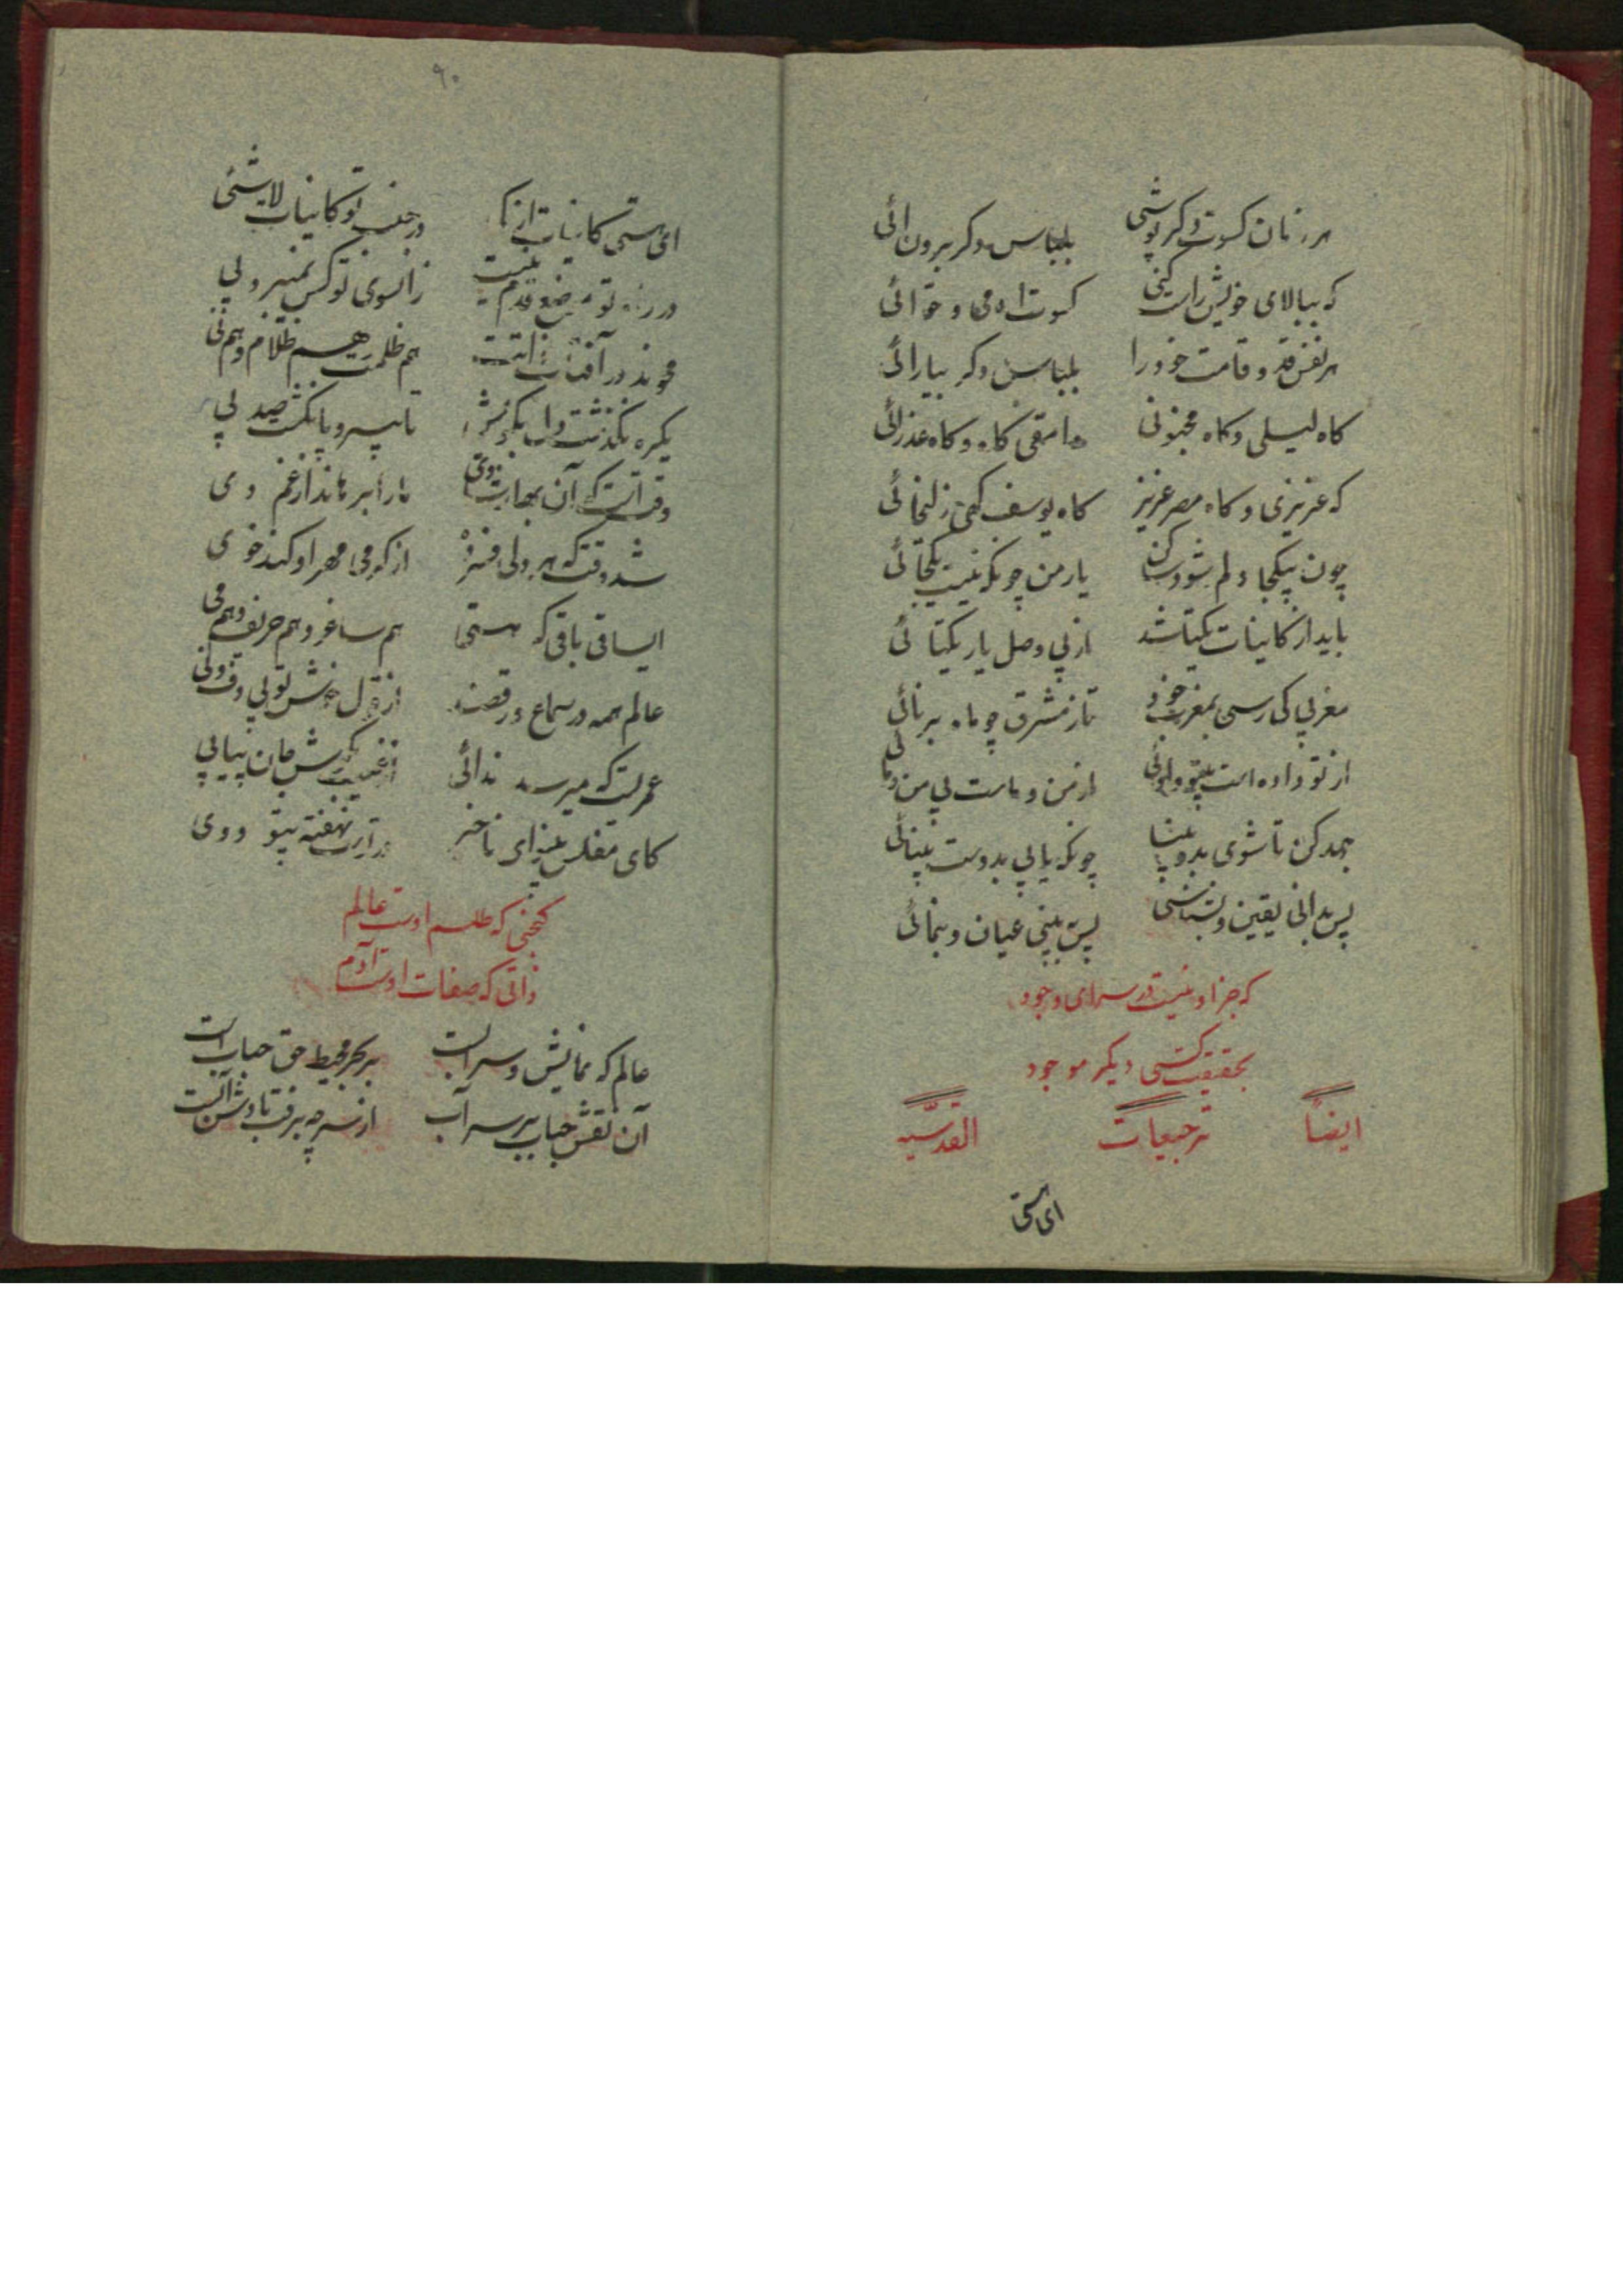 هر زمان کسوت دکر پوشی بلباس دکر برون ائی
که ببالای خویش راست کنی کسوت ادمی و حوائی
هر نفس قد و قامت خود را بلباس دکر بیارائی
کاه لیلی و کاه مجنونی وامقی کاه و کاه عذرائی
که عزیزی و کاه مصر عزیز کاه یوسف کهی زلیخائی
چون بیکجا دلم شود ساکن یار من چونکه نیست یکجائی
باید از کاینات یکتا شد از پی وصل یار یکتائی
مغربی کی رسی بمغرب خود تا ز مشرق چو ماه برنائی
از تو داده است بیتو و اوئی از من و ماست بی من و مائی
جهد کن تا شوی بدو بینا چونکه یابی بدوست بینائی
پس بدانی یقین و بشناسی پس ببینی عیان و بنمائی
که جز او نیست در سرای وجود
بحقیقت کسی دیکر موجود
ایضاً ترجیعات القدسیه
ای هستی
۹۰
ای هستی کاینات از تو در جنب تو کاینات لاشئی
در راه تو موضع قدم نیست زانسوی تو کس نمیبرد پی
در آفتاب ذاتت هم ظلمت هم ظلام و هم فی
یکره بکذشت تا بسر و پا نکشت صد پی
وقتست که آن بهار ما را برهاند از غم دی
شد وقت که هر دلی فسرده از کرمی مهر او کند خوی
ایساقی باقی که هستی هم ساغر و هم حریف و هم می
عالم همه در سماع و رقصند از قول خوش تو بی دف و نی
عمریست که میرسد ندائی از غیب بکوش جان پیاپی
کای مفلس بینوای ناخیز نهفته بیتو در وی
کنجی که طلسم اوست عالم
ذاتی که صفات اوست آدم
عالم که نمایش و سرابست بر بحر محیط حق حبابست
آن نقش حباب بر سر آب از سر چه برفت باد و شد آبست